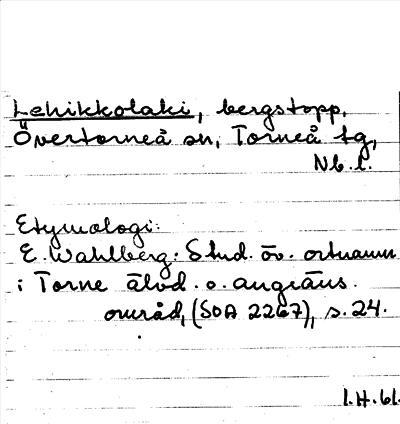 Lehikkolaki, bergstopp,
Övertorneå sn, Torneå tg,
Nb. l.
Etymologi:
E. Wahlberg: Stud. öv. ortnamn
i Torne älvd. o. angräns.
områd, (SOA 2267), s. 24.
I. H. 61.